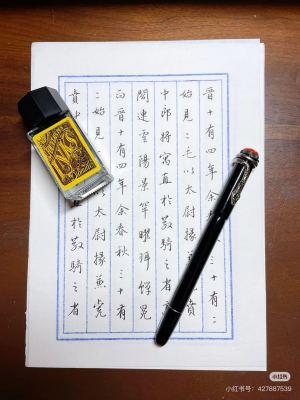 晉十有四年余春秋三十有二
始見二毛以太尉掾兼虎賁
中郎將寓直於散騎之省
閣連雲陽景罕曜珥蟬冕
晉十有四年余春秋三十有
二始見以太尉掾兼虎
賁中於散騎之省
小红书
小红书号：427687539